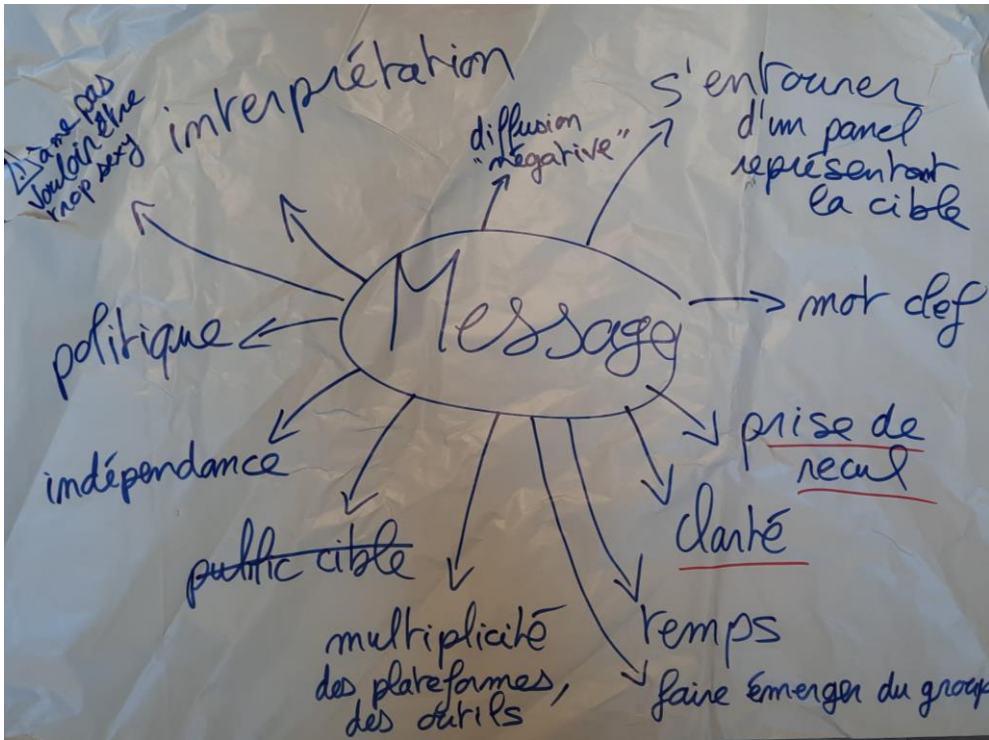 ⚠ à ne pas
vouloir être
trop sexy
interprétation
diffusion
"négative"
s'entourer
d'un panel
représentant
la cible
Message
mot clef
politique
prise de
recul
indépendance
clarté
public cible
multiplicité
des plateformes,
des outils
temps
faire émerger du group